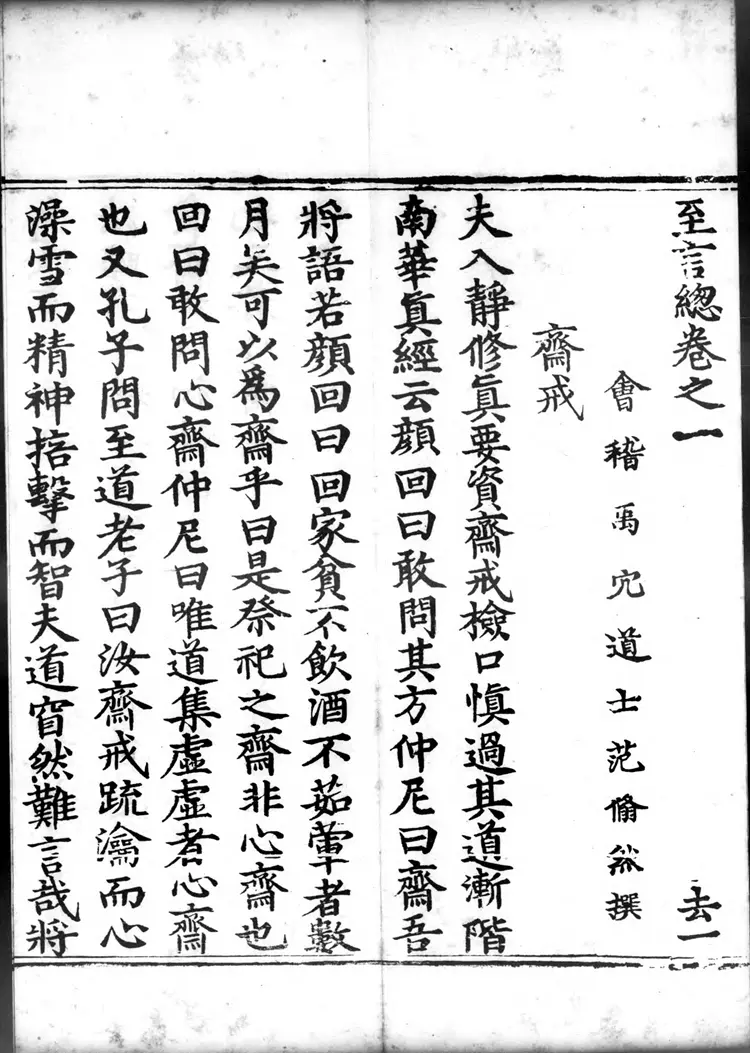 至言總卷之一 去一
會稽禹穴道士范翛然撰
齋戒
夫入靜修眞要資齋戒檢口愼過其道漸階
南華眞經云顔回曰敢問其方仲尼曰齋吾
將語若顔回曰回家貧不飲酒不茹葷者數
月矣可以爲齋乎曰是祭祀之齋非心齋也
回曰敢問心齋仲尼曰唯道集虛虛者心齋
也又孔子問至道老子曰汝齋戒疏瀹而心
澡雪而精神掊擊而智夫道窅然難言哉將